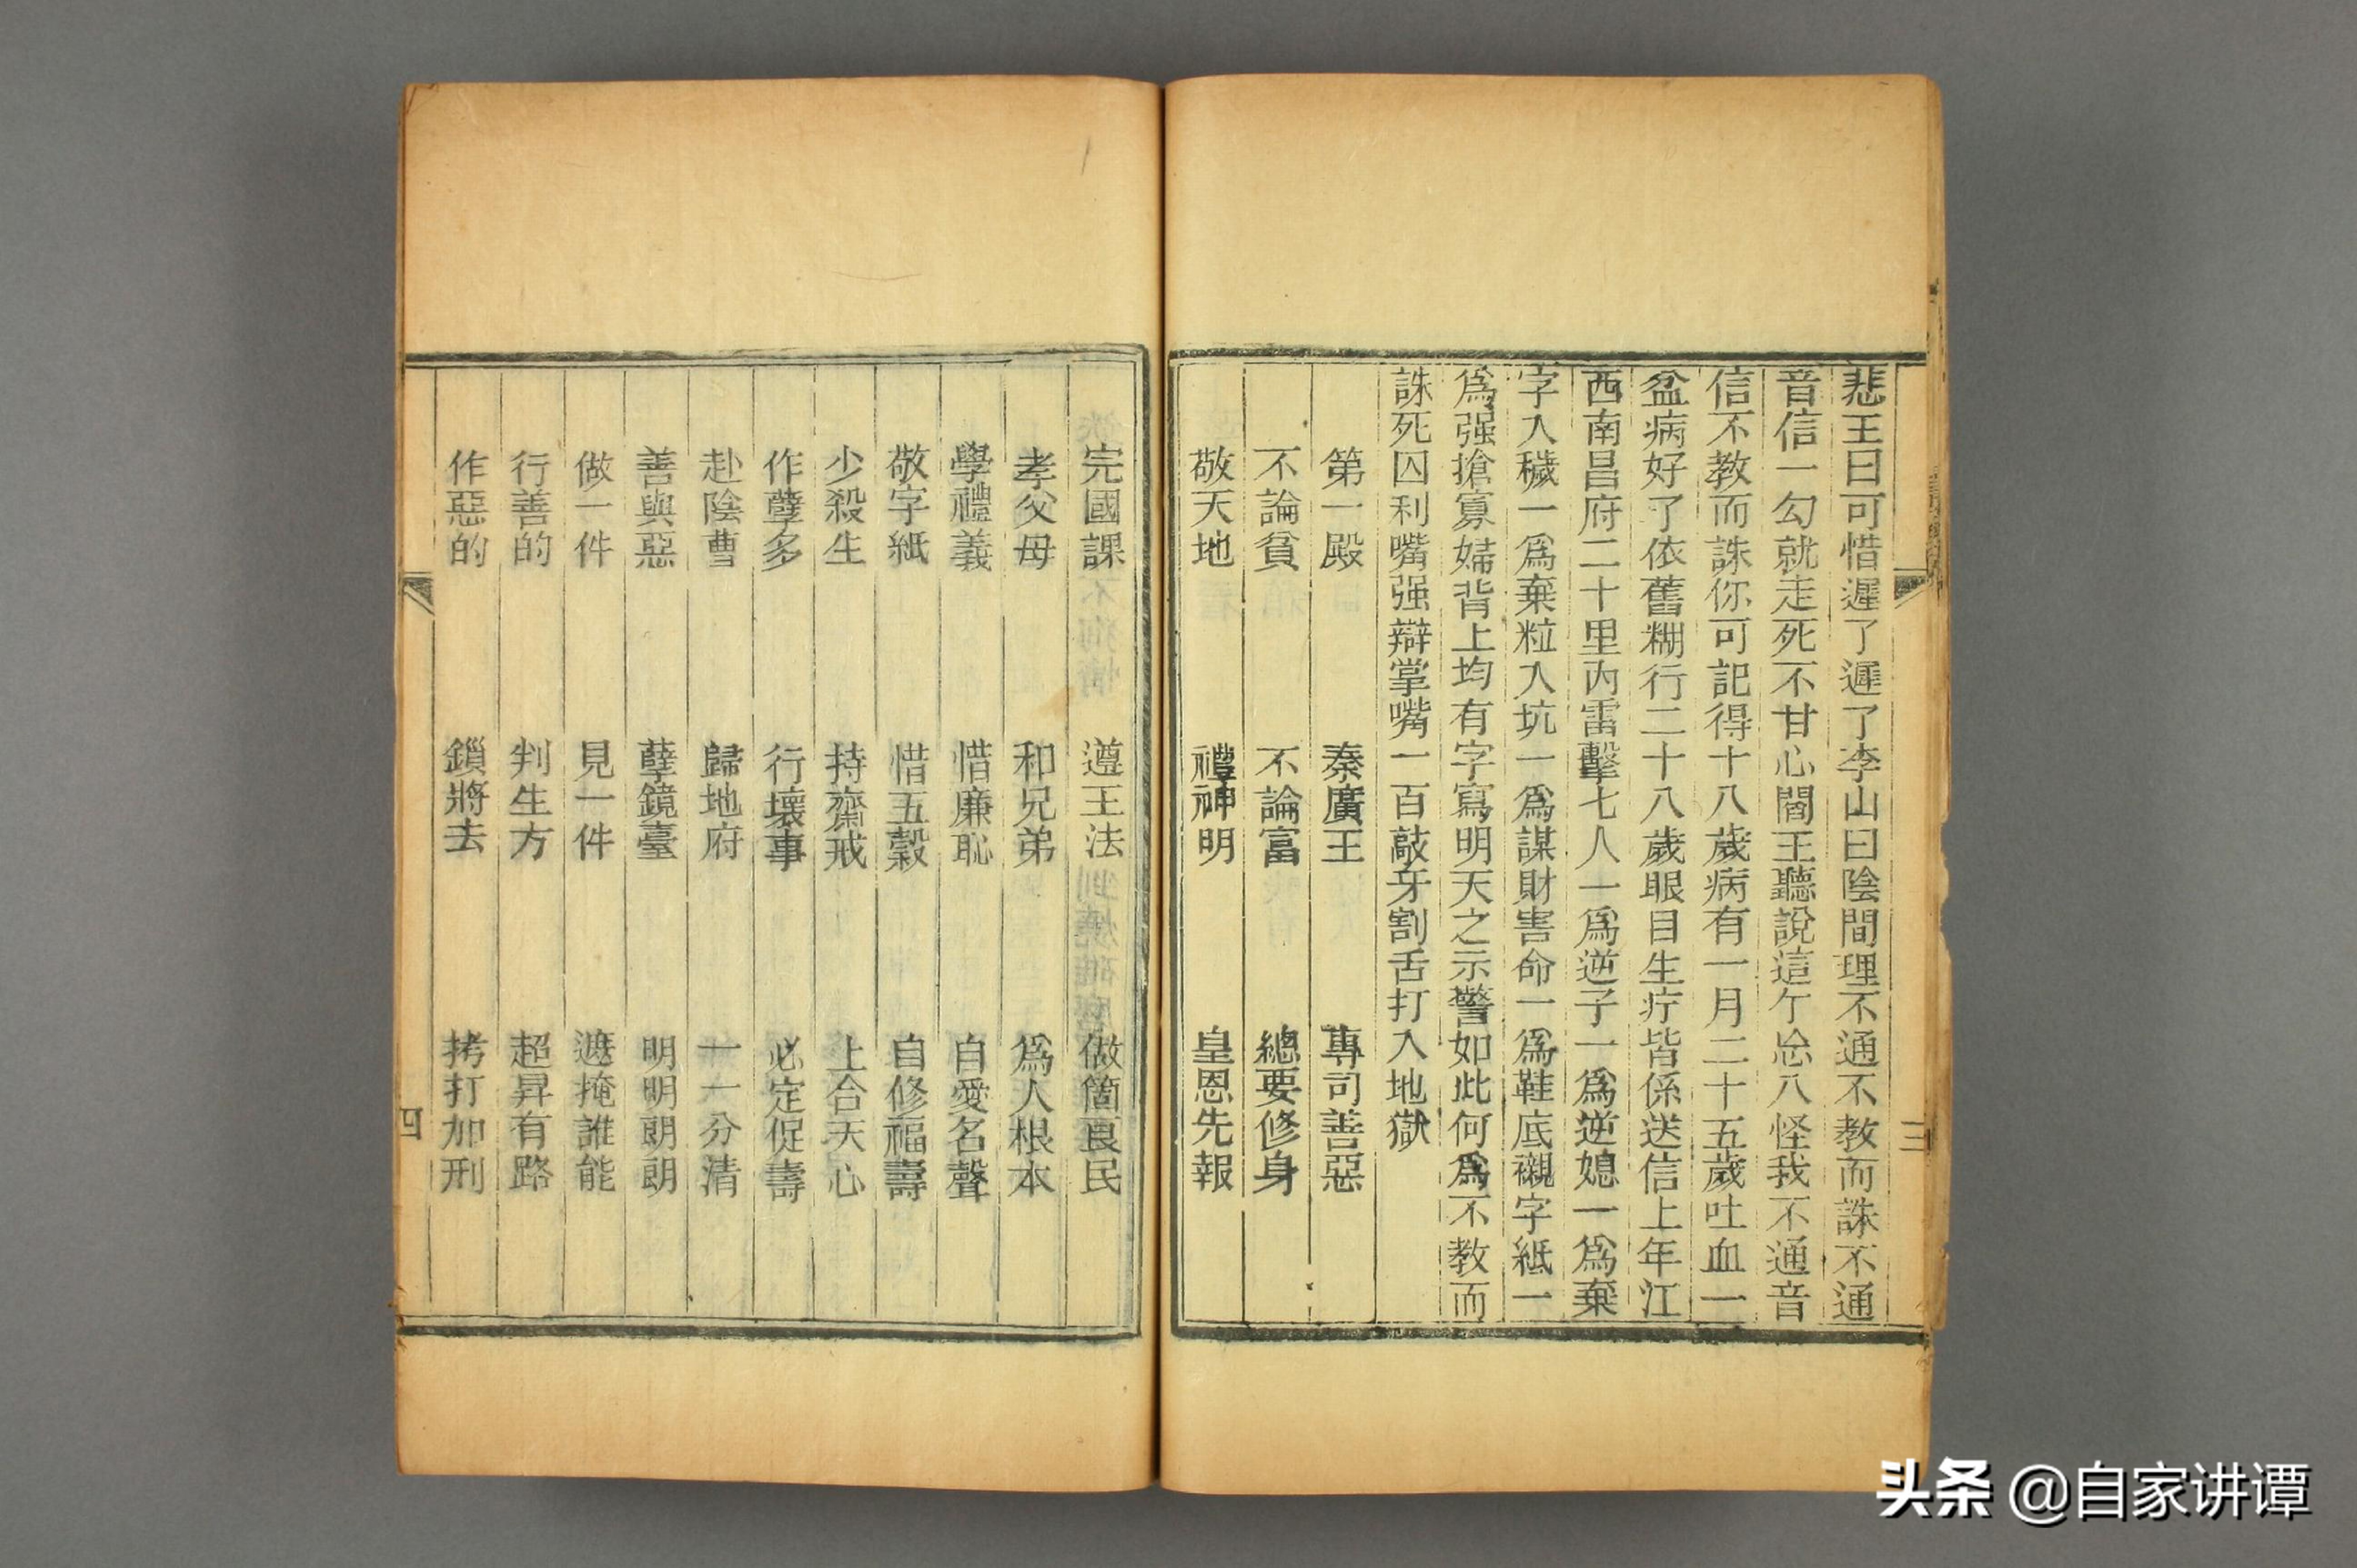 悲王曰可惜遲了遲了李山曰陰間理不通不教而誅不通
音信一勾就走死不甘心閻王聽說這个忩八怪我不通音
信不教而誅你可記得十八歲病有一月二十五歲吐血一
盆病好了依舊糊行二十八歲眼目生疔皆係送信上年江
西南昌府二十里內雷擊七人一為逆子一為逆媳一為棄
字入穢一為棄粒入坑一為謀財害命一為鞋底襯字紙一
為强搶寡婦背上均有字寫明天之示警如此何為不教而
誅死囚利嘴强辯掌嘴一百敲牙割舌打入地獄
第一殿　秦廣王　專司善惡
不論貧　不論富　總要修身
敬天地　禮神明　皇恩先報
三
完國課　遵王法　做箇良民
孝父母　和兄弟　為人根本
學禮義　惜廉恥　自愛名聲
敬字紙　惜五穀　自修福壽
少殺生　持齋戒　上合天心
作孽多　行壞事　必定促壽
赴陰曹　歸地府　一一分清
善與惡　孽鏡臺　明明朗朗
做一件　見一件　遮掩誰能
行善的　判生方　超昇有路
作惡的　鎖將去　拷打加刑
四
头条 @自家讲谭